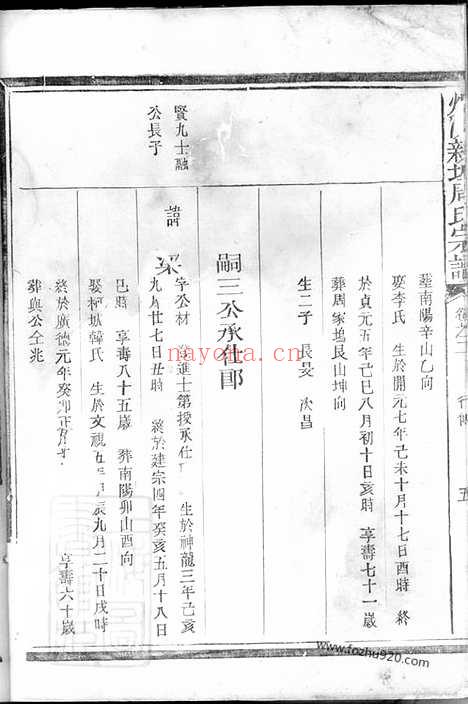 新城周氏宗譜
五
塟南陽辛山乙向
娶李氏 生於開元七年己未十月十七日酉時 終
於貞元五年己巳八月初十日亥時 享壽七十一歲
葬周家塢艮山坤向
生二子 長旻 次昌
嗣三公承仕郎
賢九士融
公長子
諱 宷 字公材 進士第授承仕 生於神龍三年己亥
九月廿七日丑時 終於建宗四年癸亥五月十八日
巳時 享壽八十五歲 葬南陽卯山酉向
娶柯城韓氏 生於文視五年 辰九月二十日戌時
終於廣德元年癸卯正月 享壽六十歲
葬與公仝兆
nayona.cn
www.fozhu920.com